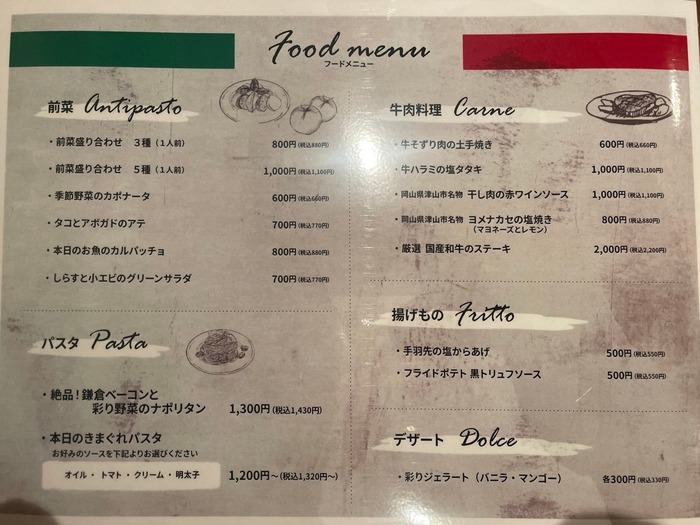 Food menu
フードメニュー
前菜 Antipasto
・前菜盛り合わせ 3種（1人前） 800円(税込880円)
・前菜盛り合わせ 5種（1人前） 1,000円(税込1,100円)
・季節野菜のカポナータ 600円(税込660円)
・タコとアボガドのアテ 700円(税込770円)
・本日のお魚のカルパッチョ 800円(税込880円)
・しらすと小エビのグリーンサラダ 700円(税込770円)
パスタ Pasta
・絶品！鎌倉ベーコンと
彩り野菜のナポリタン 1,300円(税込1,430円)
・本日のきまぐれパスタ
お好みのソースを下記よりお選びください
オイル・トマト・クリーム・明太子 1,200円〜(税込1,320円〜)
牛肉料理 Carne
・牛そずり肉の土手焼き 600円(税込660円)
・牛ハラミの塩タタキ 1,000円(税込1,100円)
・岡山県津山市名物 干し肉の赤ワインソース 1,000円(税込1,100円)
・岡山県津山市名物 ヨメナカセの塩焼き 800円(税込880円)
（マヨネーズとレモン）
・厳選 国産和牛のステーキ 2,000円(税込2,200円)
揚げもの Fritto
・手羽先の塩からあげ 500円(税込550円)
・フライドポテト 黒トリュフソース 500円(税込550円)
デザート Dolce
・彩りジェラート（バニラ・マンゴー） 各300円(税込330円)